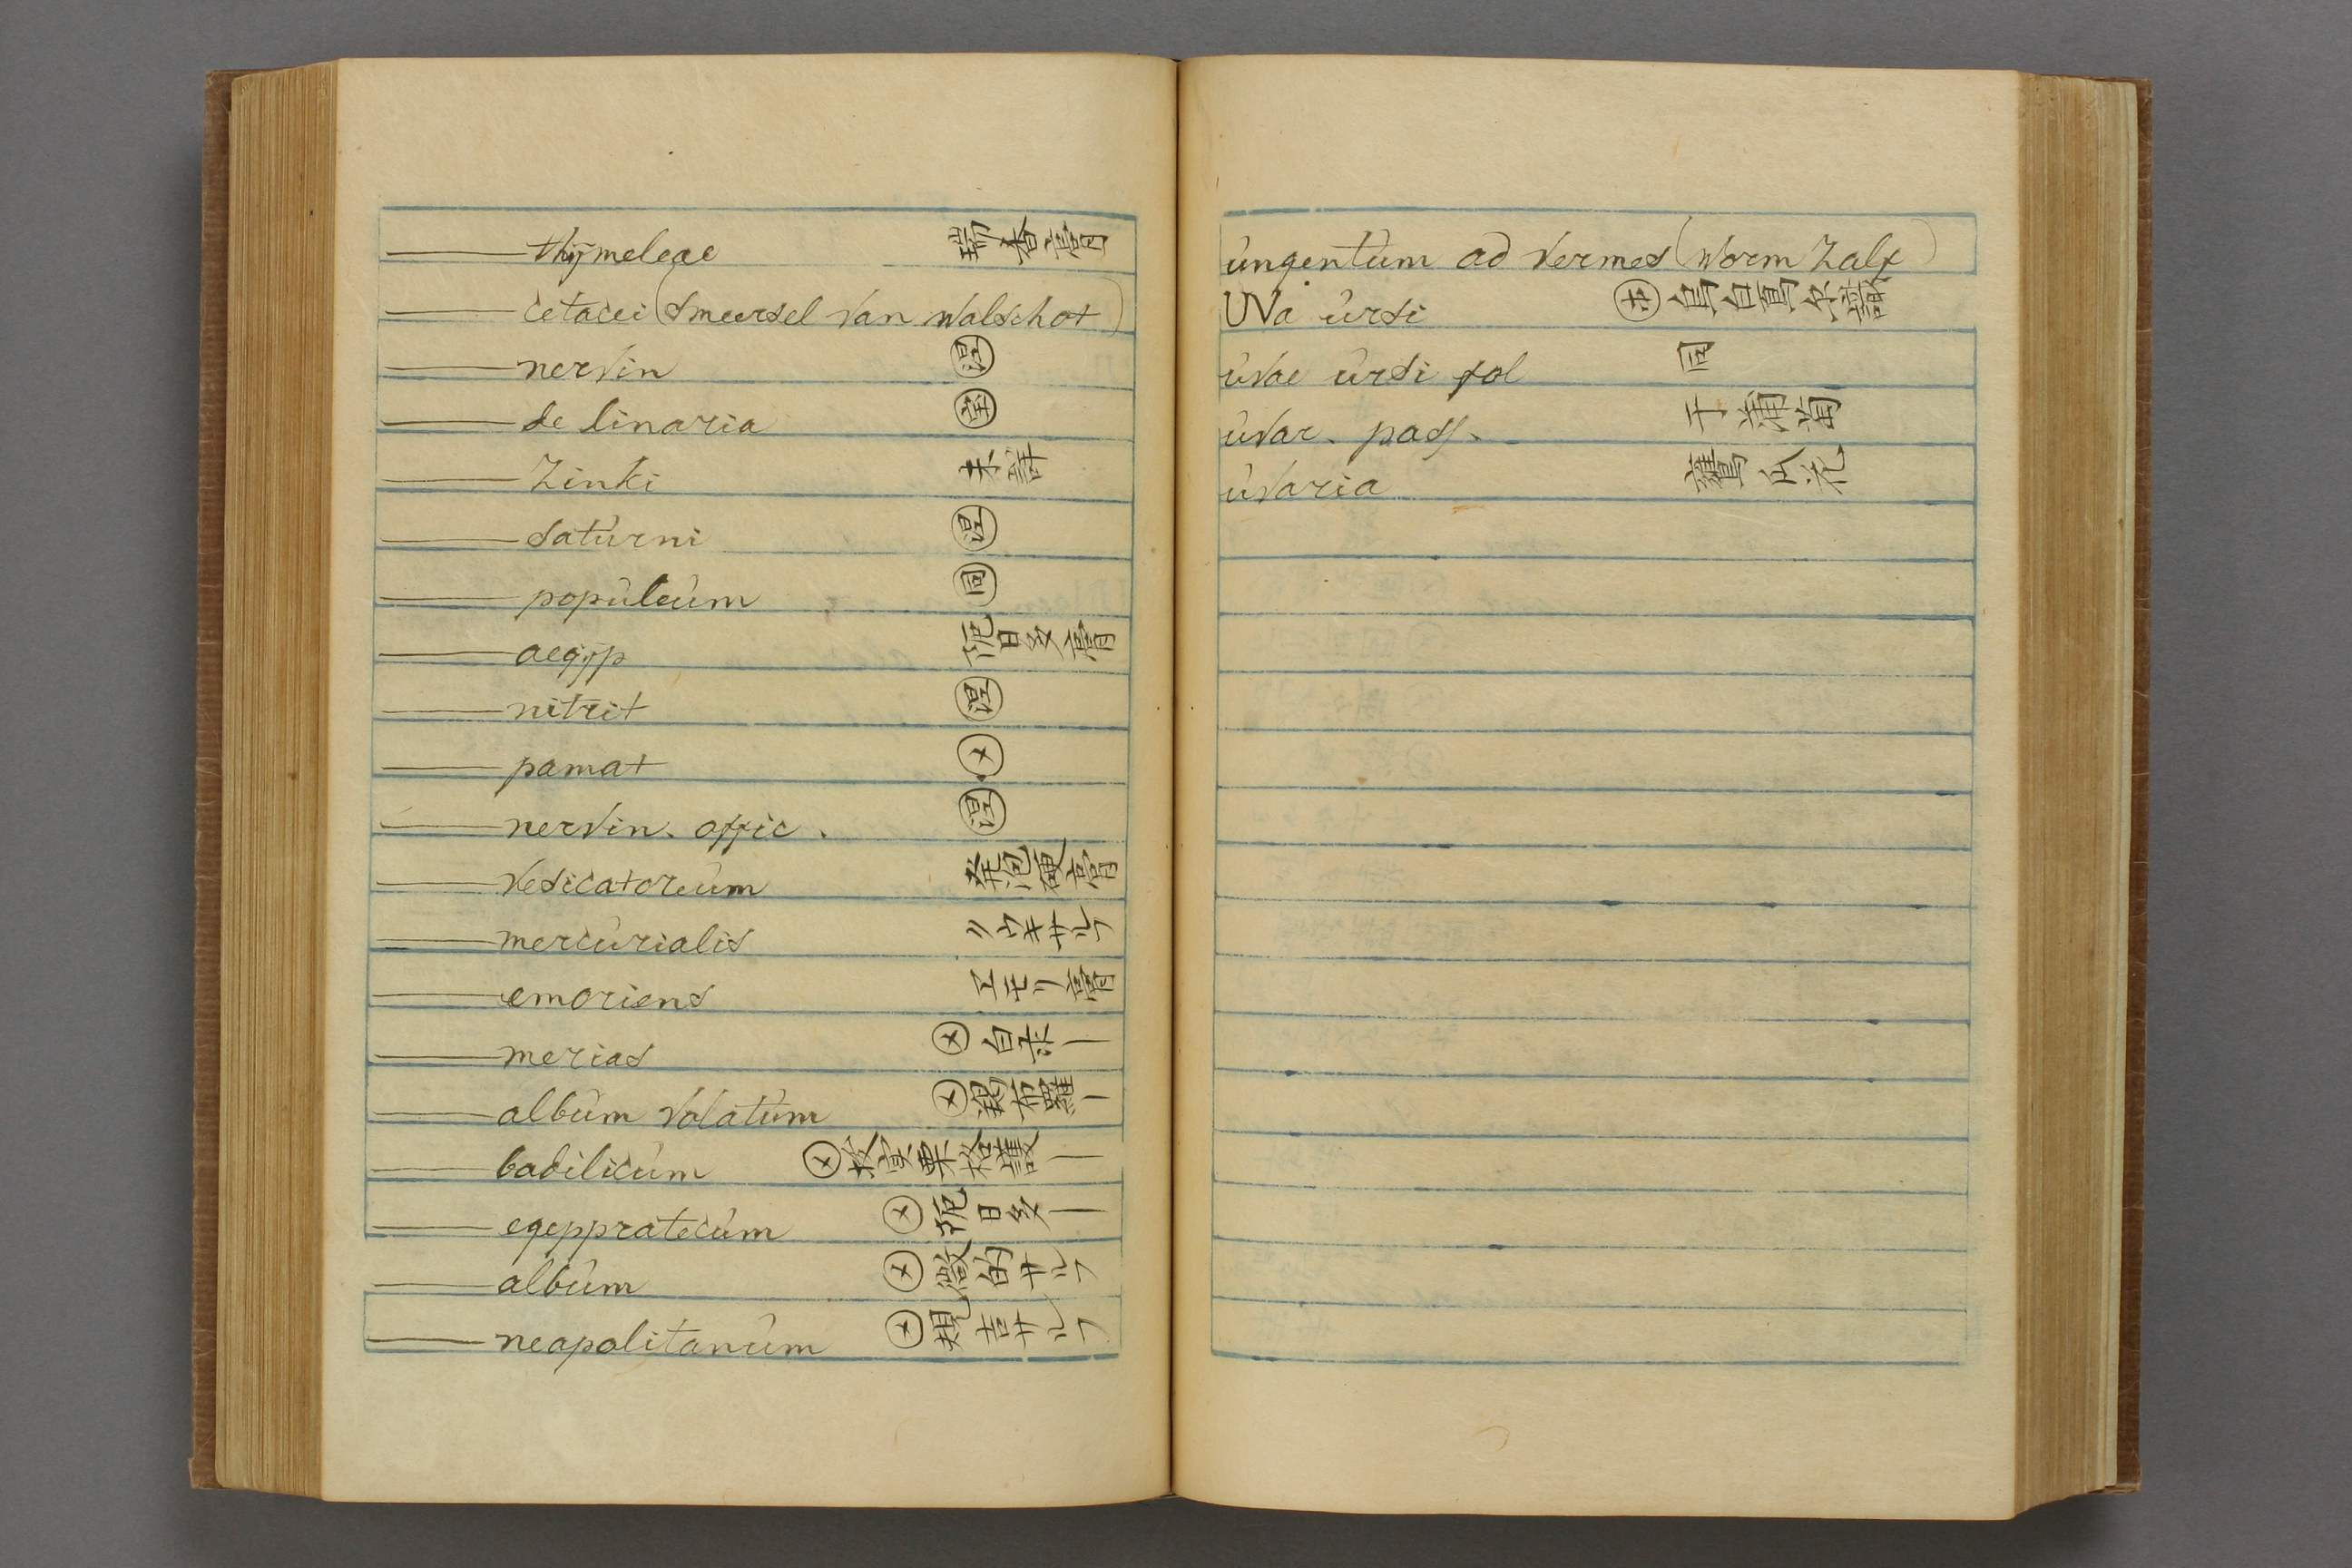 —— thÿmeleae 瑞香膏
—— cetacei (smeersel van walschot)
—— nervin ㊥涅
—— de linaria 室
—— Zinki 未詳
—— saturni 涅
—— populeum 同
—— aegÿp 扼日多膏
—— nitrit 涅
—— pamat メ
—— nervin. offic. 涅
—— vesicatoreum 発泡硬膏
—— mercurialis ソウキサルフ
—— emoriens エモリ膏
—— merias メ 白 —
—— album volatum メ 布羅 —
—— basilicum メ —
—— egeppratecum メ 扼日多 —
—— album メ 的サルフ
—— neapolitanum メ 吉サルフ
ungentum ad vermes (worm Zalf)
UVa ursi
uvae ursi fol 同
uvar. pass. 干蒲萄
uvaria